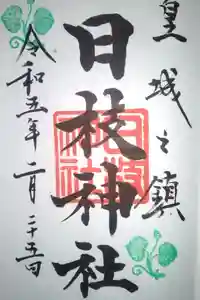 皇城之鎮
日枝神社
令和五年二月二十五日
日枝神社